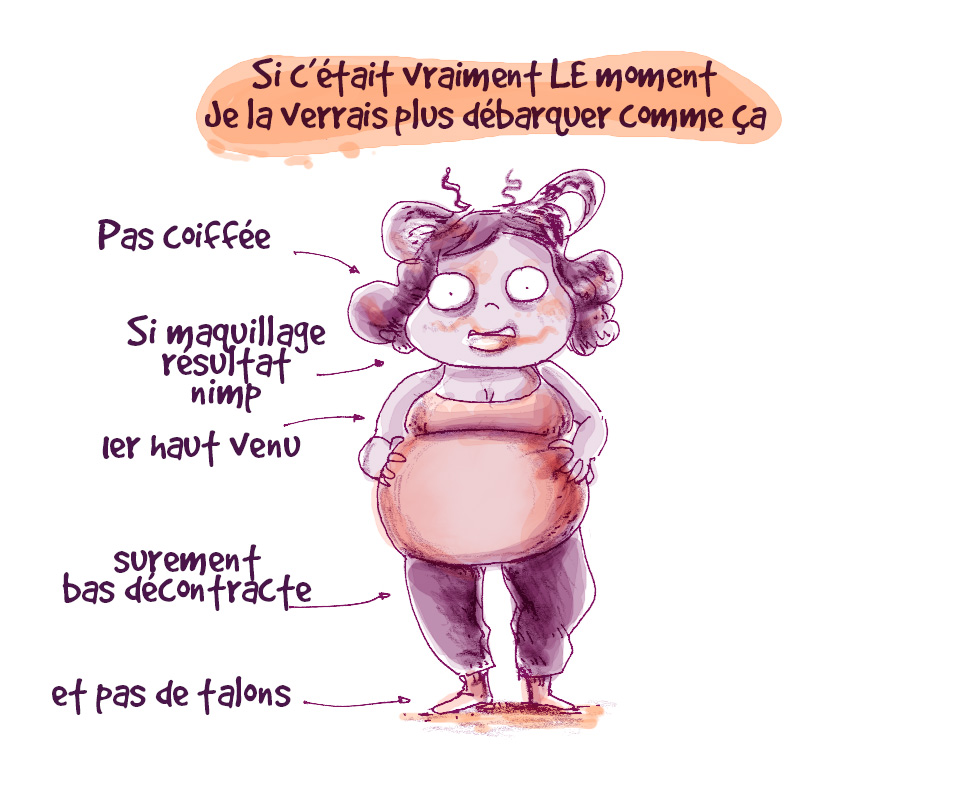 Si c'était vraiment LE moment
Je la verrais plus débarquer comme ça
Pas coiffée
Si maquillage
résultat
nimp
1er haut venu
surement
bas décontracte
et pas de talons